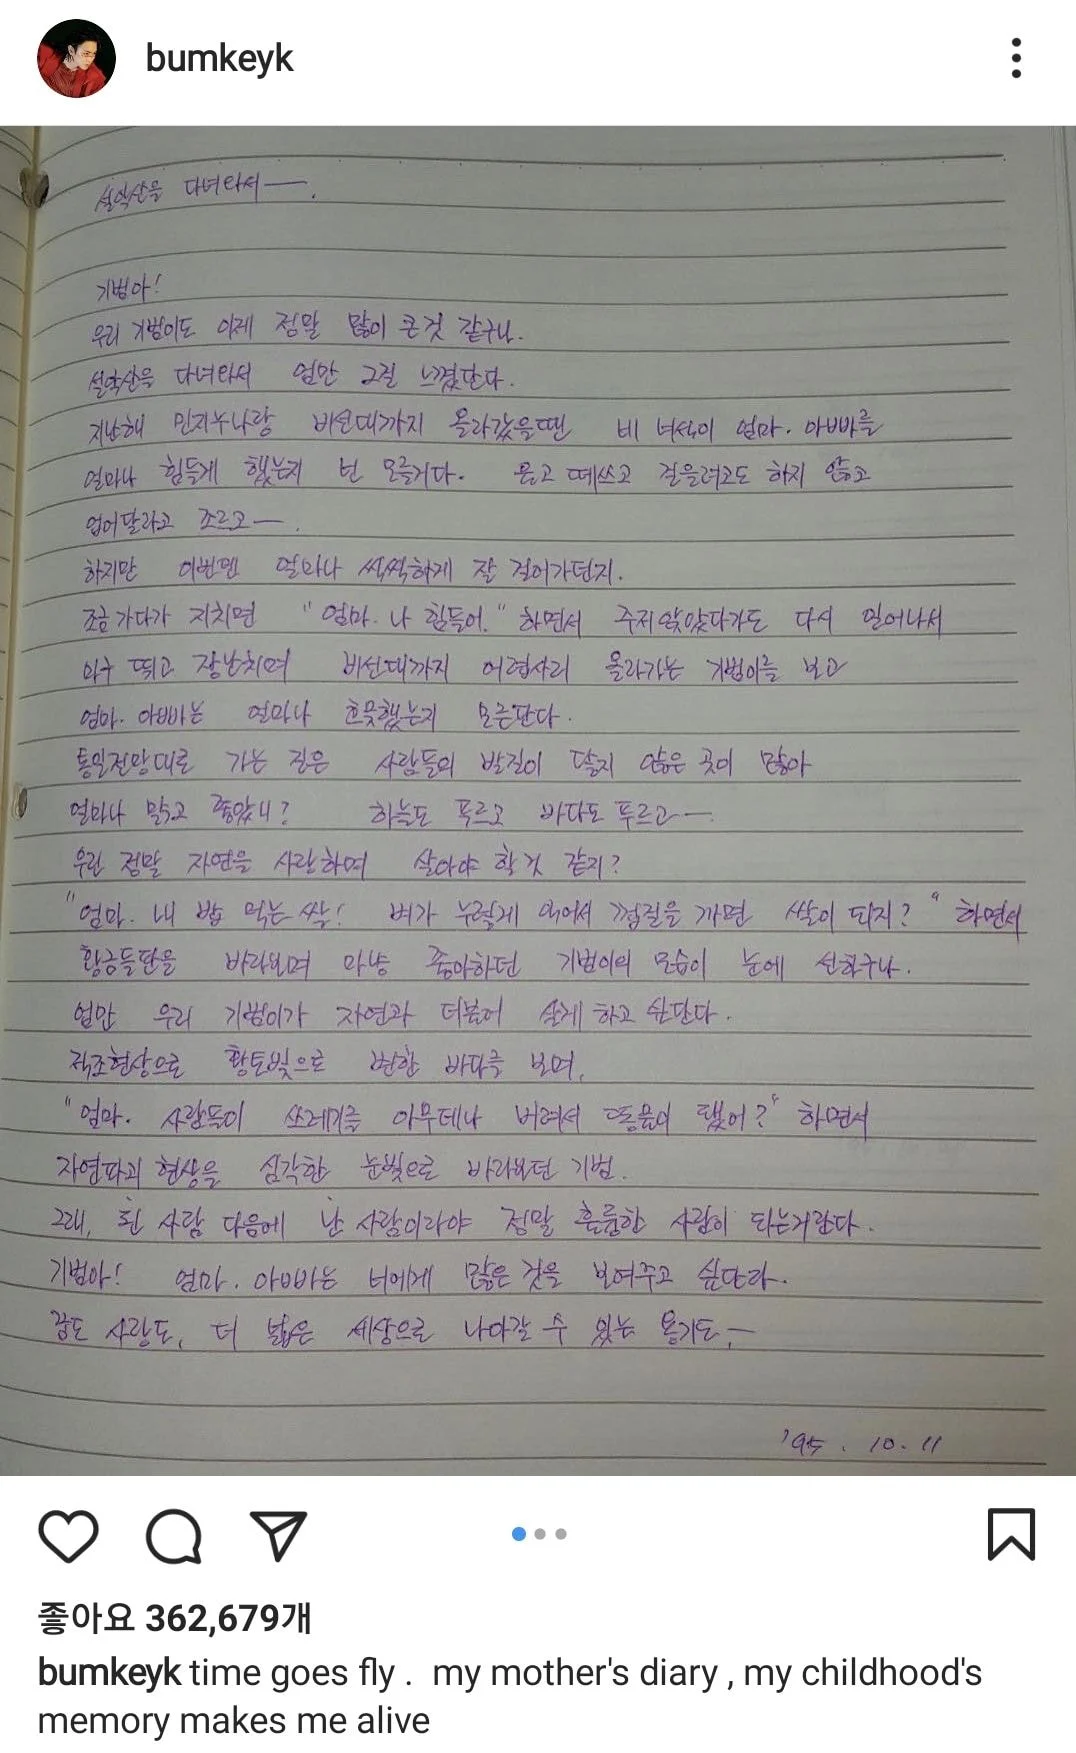 bumkeyk
설악산을 다녀와서 ―.
기범아!
우리 기범이도 이제 정말 많이 큰것 같구나.
설악산을 다녀와서 엄만 그걸 느꼈단다.
지난해 민지누나랑 비선대까지 올라갔을땐 네 녀석이 엄마. 아빠를
얼마나 힘들게 했는지 넌 모를거다. 울고 떼쓰고 걸을려고도 하지 않고
업어달라고 조르고 ―.
하지만 이번엔 얼마나 씩씩하게 잘 걸어가던지.
조금 가다가 지치면 "엄마. 나 힘들어." 하면서 주저앉았다가도 다시 일어나서
마구 뛰고 장난치며 비선대까지 어렵사리 올라가는 기범이를 보고
엄마. 아빠는 얼마나 흐뭇했는지 모른단다.
통일전망대로 가는 길은 사람들의 발길이 닿지 않은 곳이 많아
얼마나 맑고 좋았니? 하늘도 푸르고 바다도 푸르고 ―.
우린 정말 자연을 사랑하며 살아야 할것 같지?
"엄마. 내 밥 먹는 쌀! 벼가 누렇게 익어서 껍질을 까면 쌀이 되지?" 하면서
황금들판을 바라보며 마냥 좋아하던 기범이의 모습이 눈에 선하구나.
엄만 우리 기범이가 자연과 더불어 살게 하고 싶단다.
적조현상으로 황토빛으로 변한 바다를 보며,
"엄마. 사람들이 쓰레기를 아무데나 버려서 똥물이 됐어?" 하면서
자연파괴 현상을 심각한 눈빛으로 바라보던 기범.
그래, 된 사람 다음에 난 사람이라야 정말 훌륭한 사람이 되는거란다.
기범아! 엄마. 아빠는 너에게 많은 것을 보여주고 싶단다.
꿈도 사랑도, 더 넓은 세상으로 나아갈 수 있는 용기도. ―
'95. 10. 11
좋아요 362,679개
bumkeyk time goes fly . my mother's diary , my childhood's
memory makes me alive